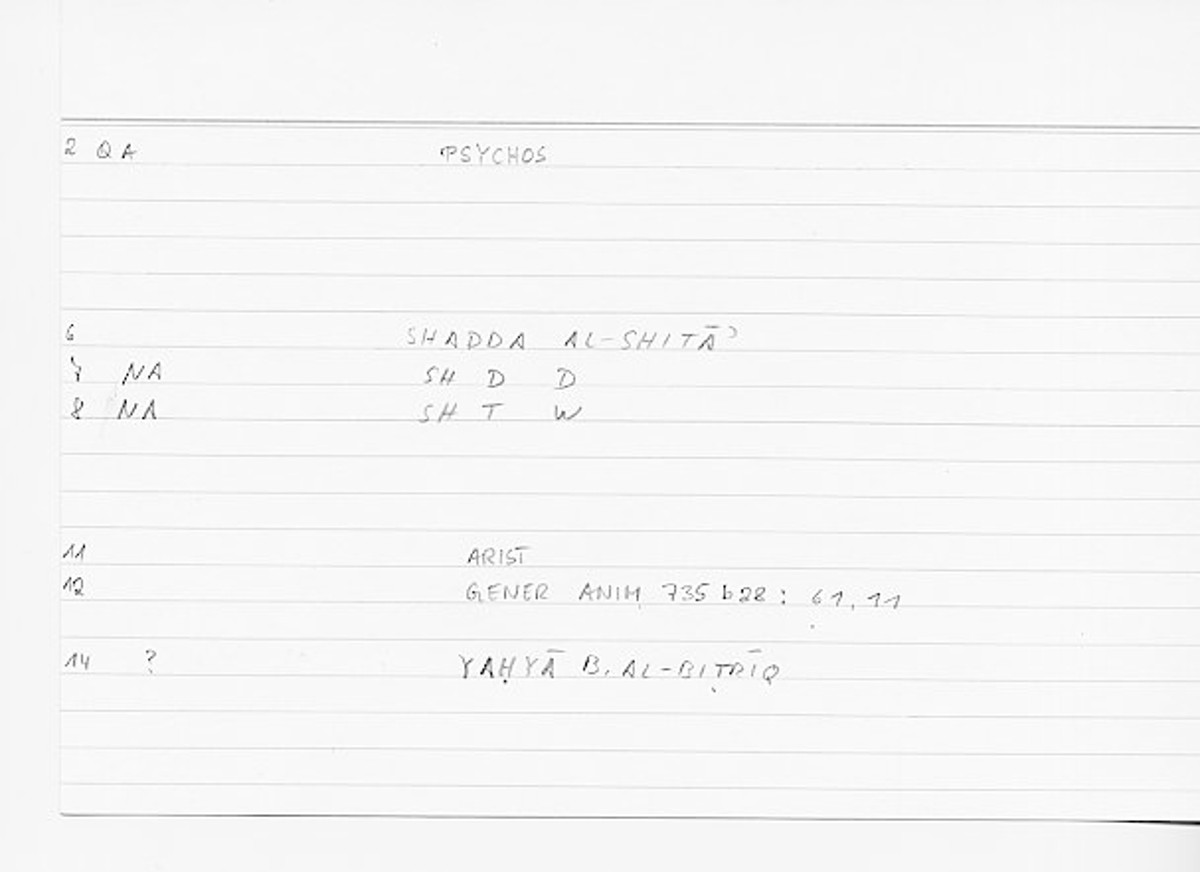 2 QA PSYCHOS
6 SHADDA AL-SHITĀʾ
7 NA SH D D
8 NA SH T W
11 ARIST
12 GENER ANIM 735 b 28 : 61, 11
14 ? YAḤYĀ B. AL-BIṬRĪQ